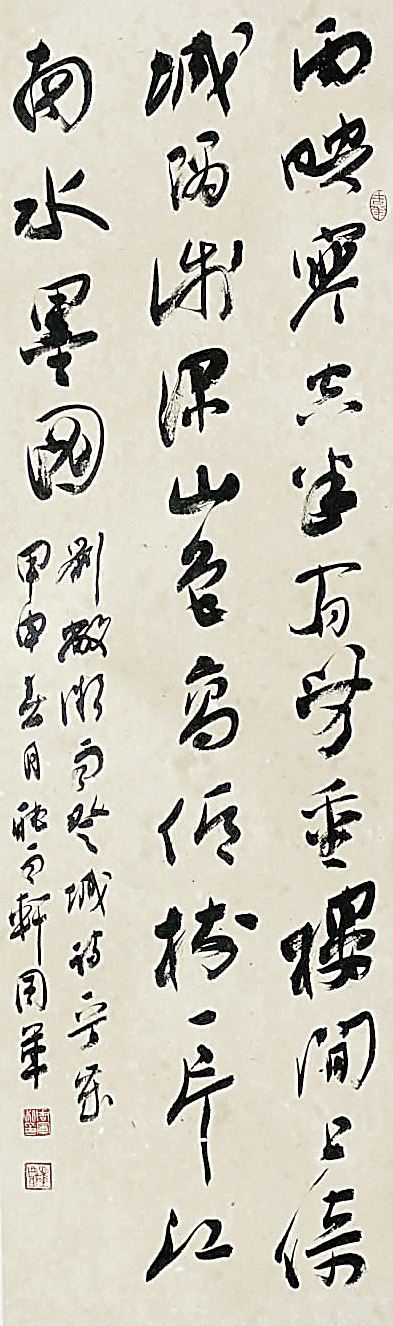 雨映寒空半有無重樓閒上倚
城隅淺深山色高低樹一片江
南水墨圖
劉敞微雨登城詩一首歲
甲申春月聽雨軒周華